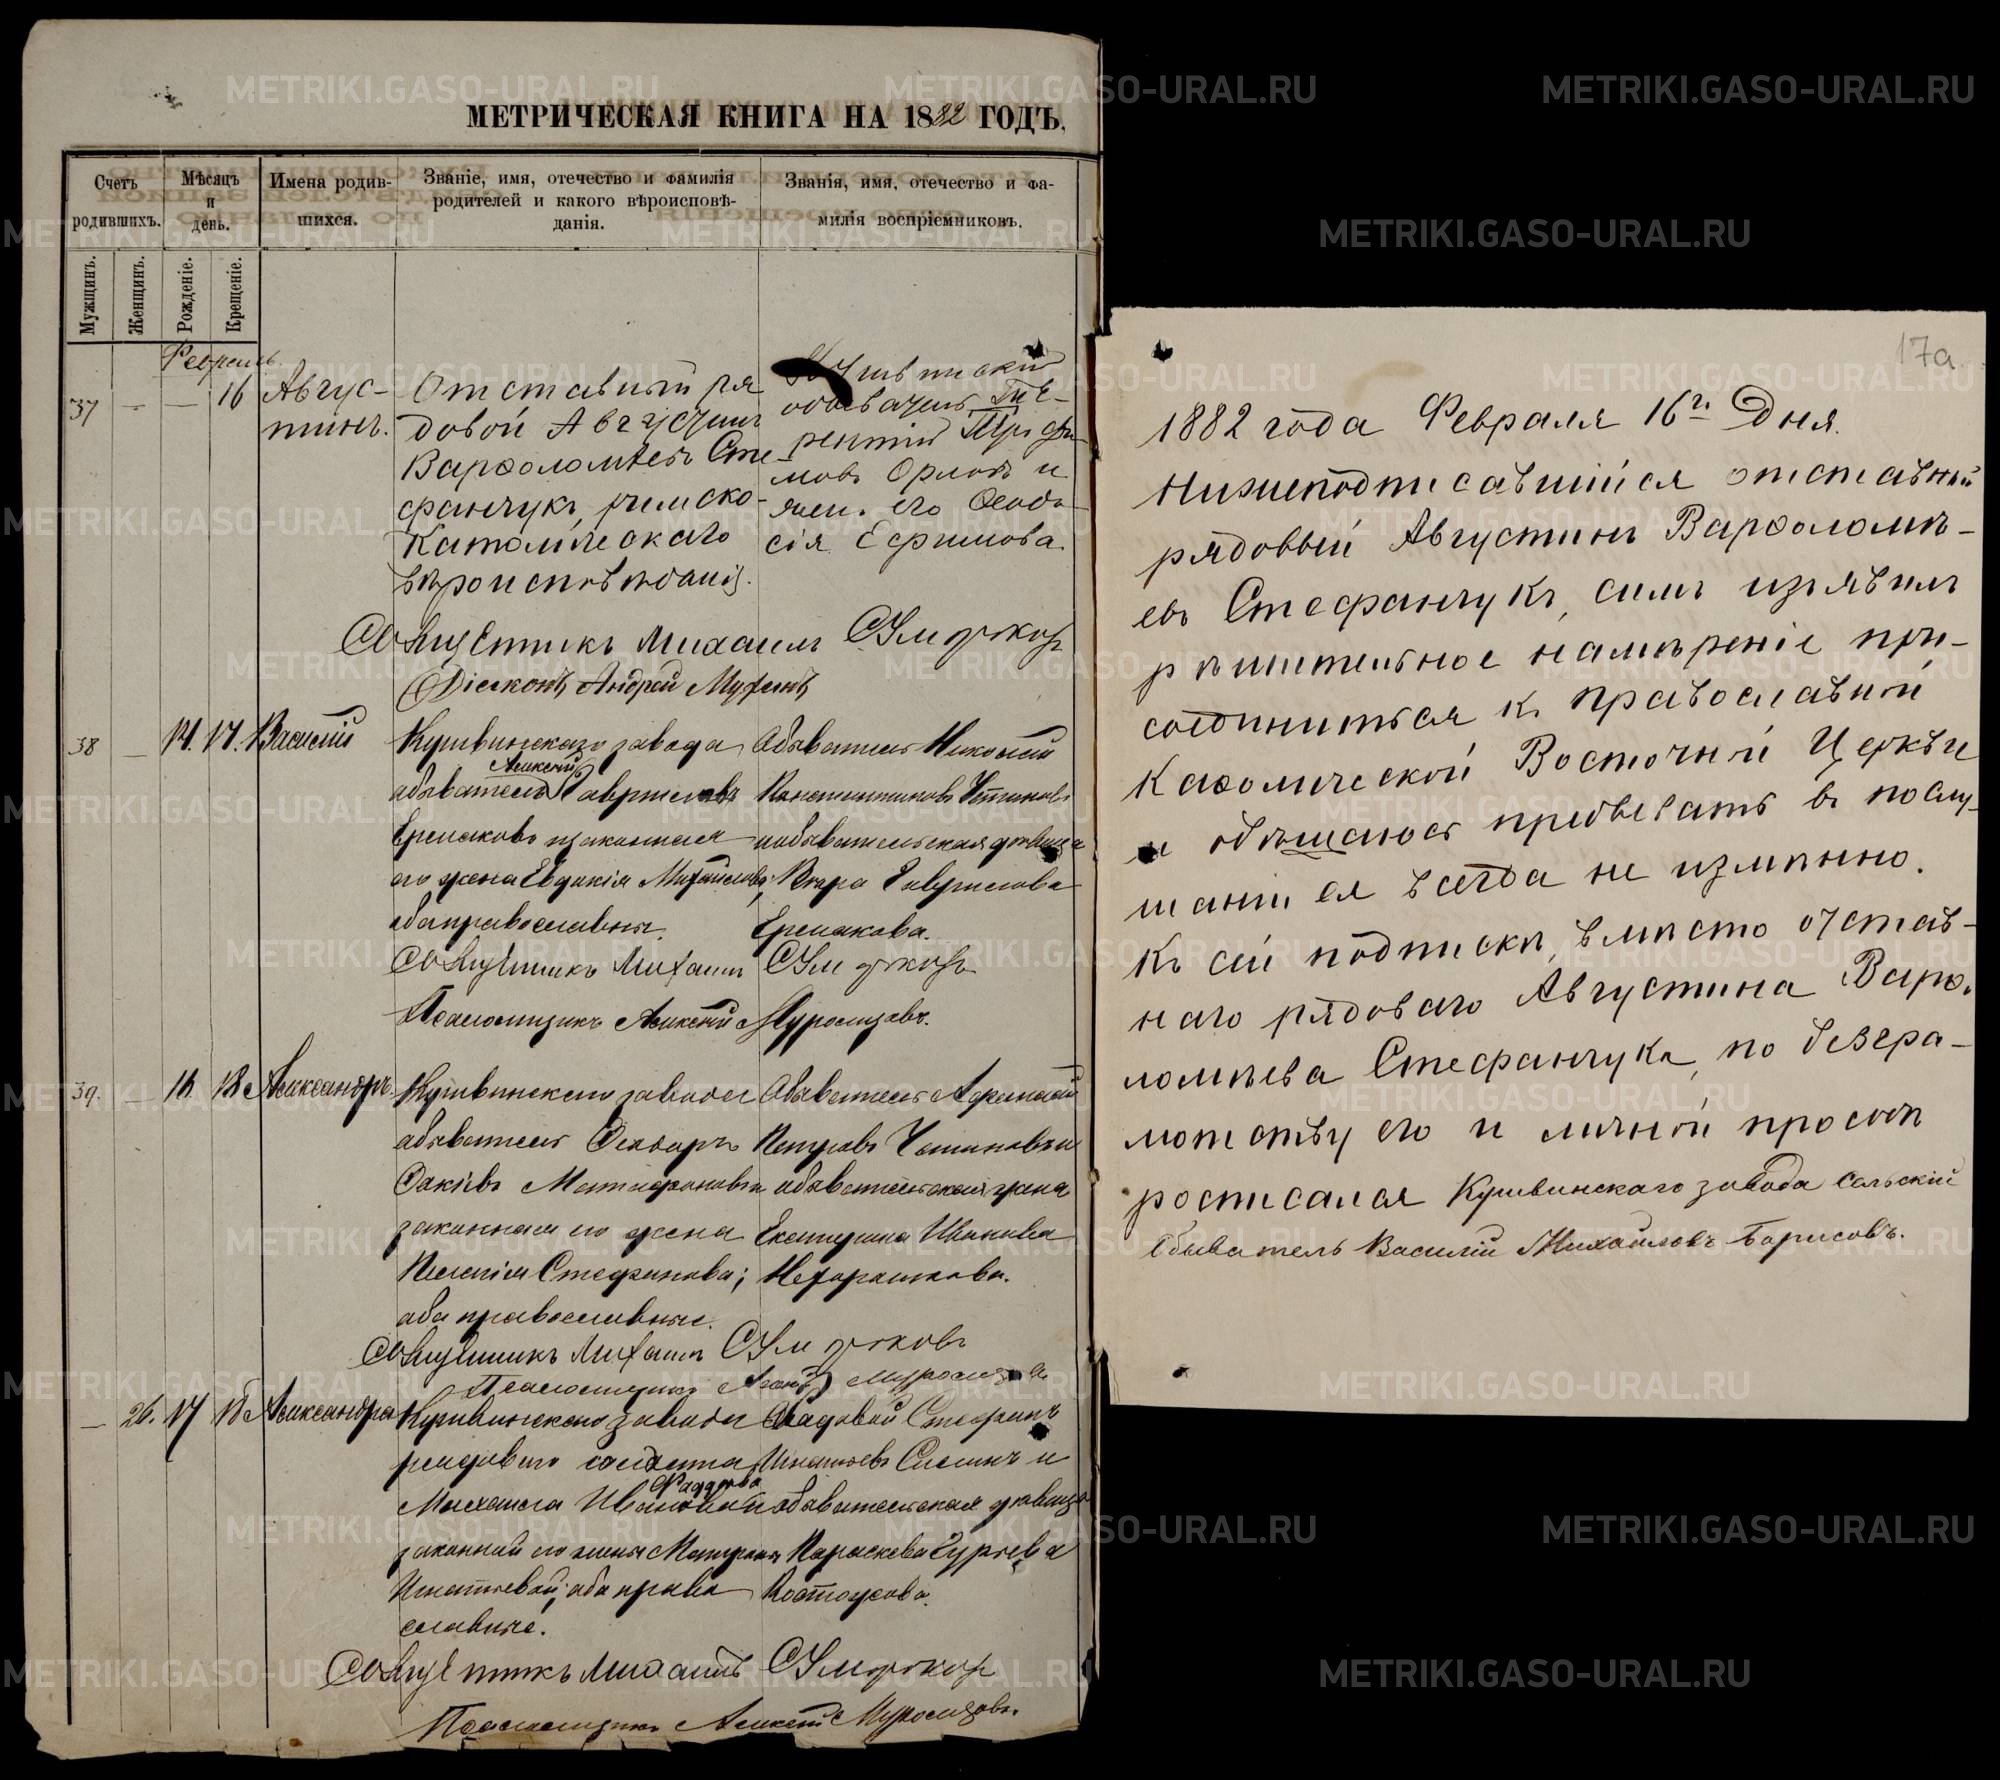 МЕТРИЧЕСКАЯ КНИГА НА 1882 ГОДЪ.
Счетъ родившихъ.
Мѣсяцъ и день.
Имена родив-
шихся.
Званіе, имя, отечество и фамилія
родителей и какого вѣроисповѣ-
данія.
Званія, имя, отечество и фа-
милія воспріемниковъ.
Мужщинъ.
Женщинъ.
Рожденіе.
Крещеніе.
Февраль.
37 — — 16
Авгус-
тинъ.
Отставный ря
довой Августинъ
Варѳоломѣевъ Сте
фанчукъ, римско-
Католическаго
вѣроисповѣданія.
Кушвинскій
обыватель Те-
рентій Трофи-
мовъ Орловъ и
жена его Ѳеодо-
сія Ефимова.
Священникъ Михаилъ
Діаконъ Андрей
38 — 14. 17. Василій
Кушвинскаго завода
обыватель Алексѣй Гавриловъ
Ермаковъ и законная
его жена Евдокія Михайлова,
оба православные.
Обыватель Николай
Константиновъ Устиновъ
и обывательская дѣвица
Вѣра Гаврилова
Ермакова.
Священникъ Михаилъ
Псаломщикъ Алексѣй
39. — 16. 18 Александръ.
Кушвинскаго завода
обыватель Ѳеодоръ
законная его жена
Стефанова;
оба православные.
Обыватель Афанасій
Петровъ
и обывательская жена
Екатерина Иванова
Нехорошкова.
Священникъ Михаилъ
Псаломщикъ
— 26. 17 18 Александра
Кушвинскаго завода
рядового солдата
Михаила Иванова Фаддѣева
законной его жены Матроны
Игнатьевой, оба право
славные.
Рядовой Стефанъ
Игнатьевъ и
обывательская дѣвица
Параскева Гурьева
Костоусова.
Священникъ Михаилъ
Псаломщикъ Алексѣй
17а
1882 года Февраля 16го Дня.
Нижеподписавшійся отставный
рядовый Августинъ Варѳоломѣ-
евъ Стефанчукъ, симъ изъявилъ
рѣшительное намѣреніе при-
соединиться къ православной
Каѳолической Восточной Церкви
и обѣщаюсь пребывать въ послу-
шаніи ея всегда не измѣнно.
Къ сей подпискѣ, вмѣсто отстав-
наго рядоваго Августина Варѳо-
ломѣева Стефанчука, по безгра-
мотству его и личной просьбѣ
росписался Кушвинскаго завода Сельскій
Обыватель Василій Михайловъ Борисовъ.
METRIKI.GASO-URAL.RU